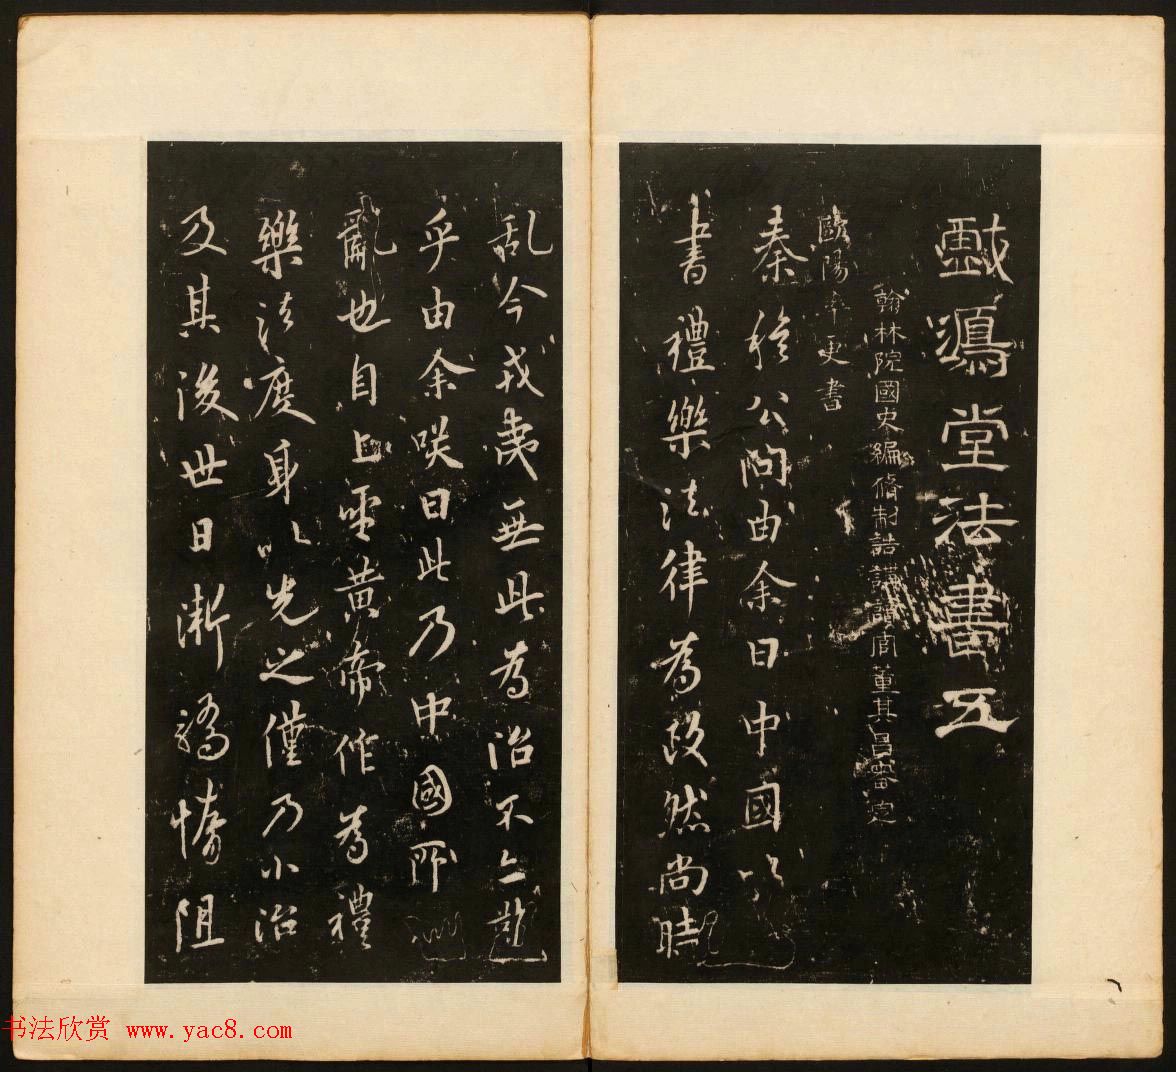 戲鴻堂法書五
翰林院國史編脩制誥講讀官董其昌審定
歐陽率更書
秦穆公問由余曰中國以
書禮樂法律為政然尚時
乱今戎夷無此為治不亦難
乎由余咲曰此乃中國所以
亂也自上聖黃帝作為禮
樂法度身以先之僅乃小治
及其後世日漸驕惰阻
书法欣赏 www.yac8.com